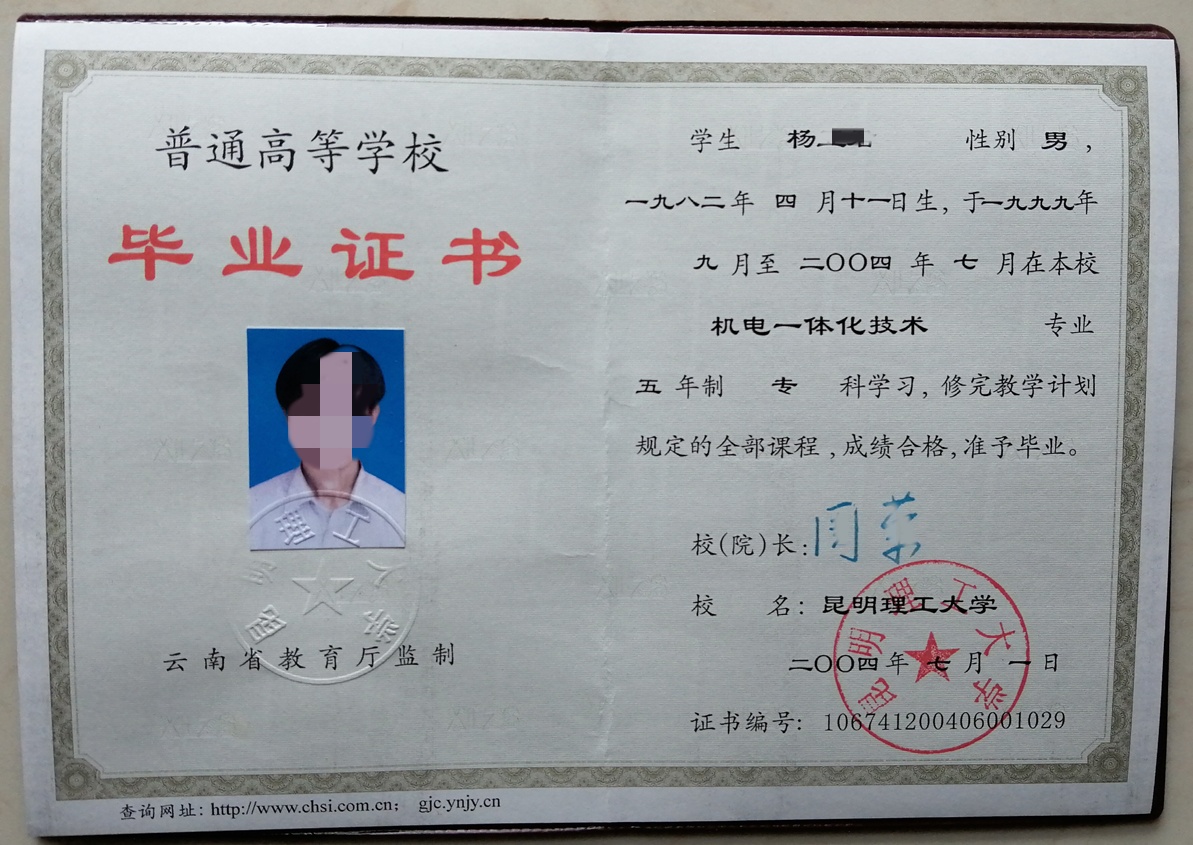 普通高等学校
毕业证书
理工
昆 大学
云南省教育厅监制
学生 杨 性别 男，
一九八二年 四 月十一日生，于一九九九年
九 月至 二〇〇四 年 七 月在本校
机电一体化技术 专业
五 年制 专 科学习，修完教学计划
规定的全部课程，成绩合格，准予毕业。
校(院)长：周荣
校 名：昆明理工大学
昆明理工大学
二〇〇四年 七 月 一 日
证书编号: 106741200406001029
查询网址：http://www.chsi.com.cn； gjc.ynjy.cn